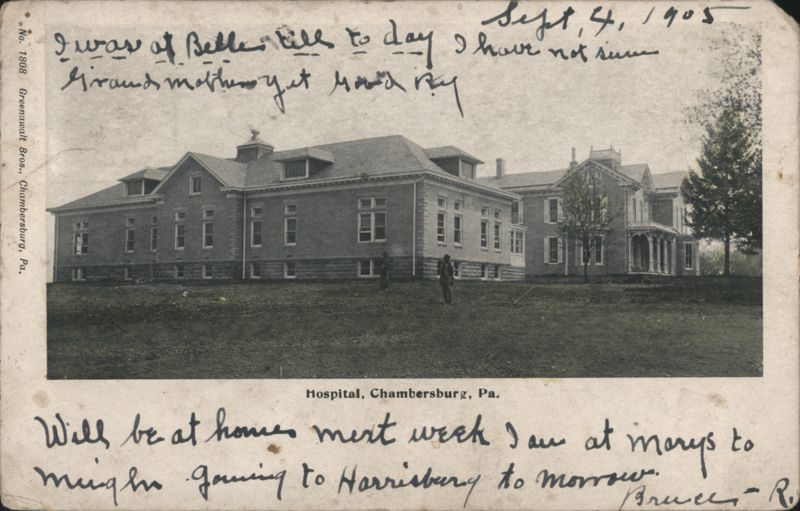 Sept, 4, 1905
I was at Belles till to day I have not seen
Grandmother yet Good By
No. 1808 Greenawalt Bros., Chambersburg, Pa.
Hospital, Chambersburg, Pa.
Will be at home next week I am at Marys to
night Goining to Harrisburg to morrow.
Bruce R.